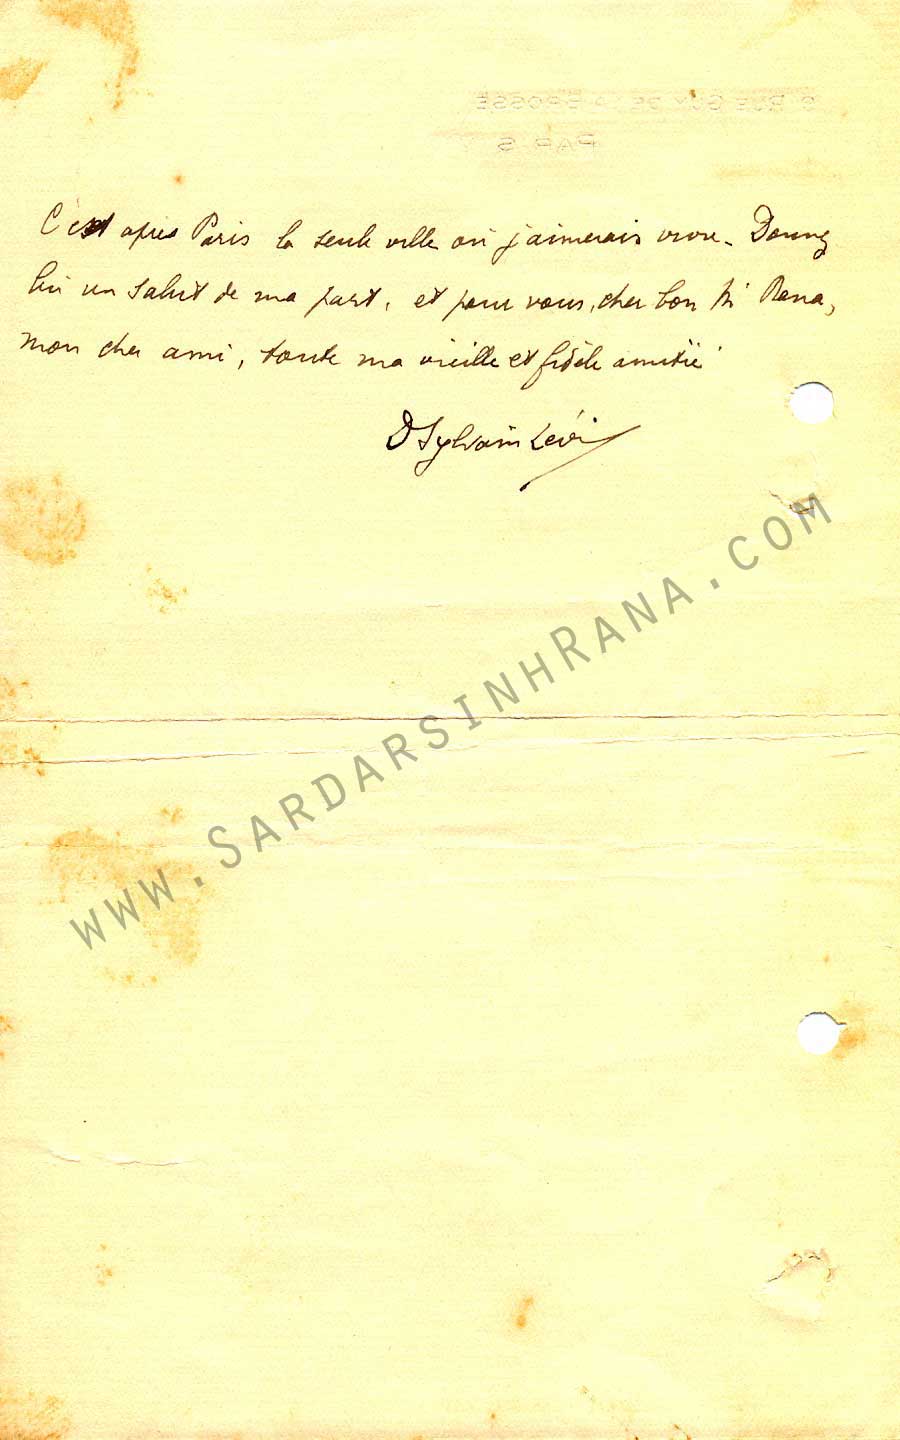 9 RUE GUY DE LA BROSSE
PARIS
C'est après Paris la seule ville où j'aimerais vivre. Donnez
lui un salut de ma part, et pour vous, cher bon Mr Rana,
mon cher ami, toute ma vieille et fidèle amitié
D Sylvain Lévi
www.SARDARSINHRANA.COM